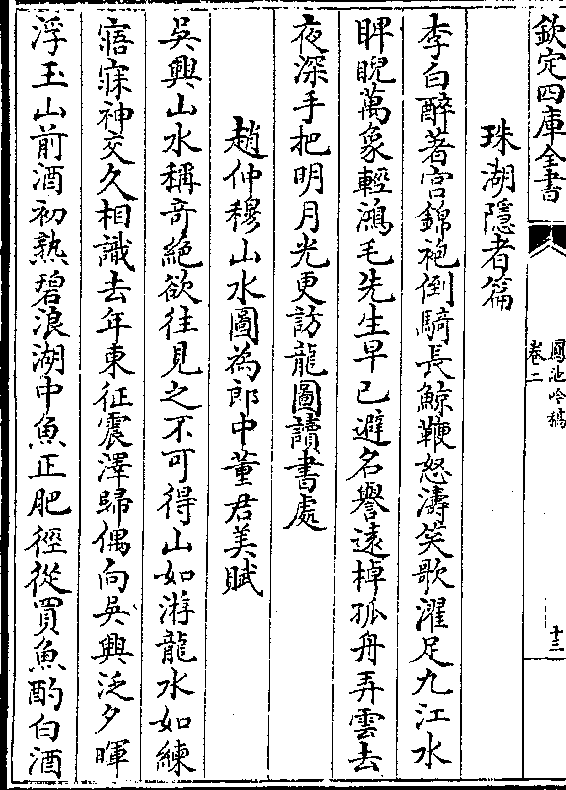 欽定四庫全書
鳳池吟稿
卷二
十三
珠湖隱者篇
李白醉著宮錦袍倒騎長鯨鞭怒濤笑歌濯足九江水
睥睨萬象輕鴻毛先生早已避名譽遠棹孤舟弄雲去
夜深手把明月光更訪龍圖讀書處
趙仲穆山水圖為郎中董君美賦
吳興山水稱竒絶欲往見之不可得山如游龍水如練
寤寐神交久相識去年東征震澤歸偶向吳興泛夕暉
浮玉山前酒初熟碧浪湖中魚正肥徑從買魚酌白酒